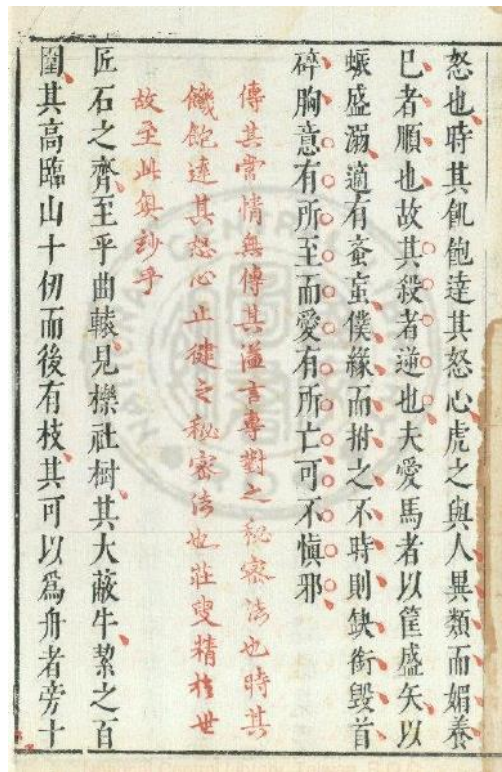 怒也時其飢飽達其怒心虎之與人異類而媚養
已者順也故其殺者逆也夫愛馬者以筐盛矢以
蜄盛溺適有蚉䖟僕緣而拊之不時則缺銜毀首
碎胸意有所至而愛有所亡可不慎邪
傳其常情無傳其溢言專對之秘密法也時其
饑飽達其怒心止健之秘密法也莊叟精於世
故至此奧妙乎
匠石之齊至乎曲轅見櫟社樹其大蔽牛絜之百
圍其高臨山十仞而後有枝其可以為舟者旁十